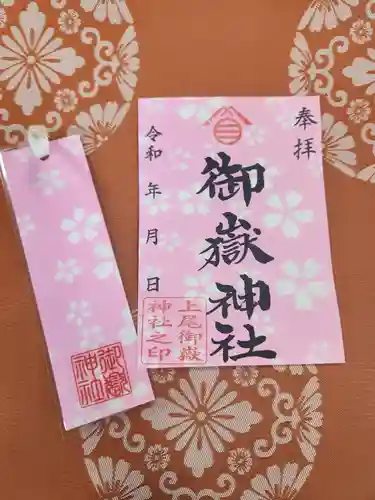 奉拝
御嶽神社
令和 年 月 日
上尾御嶽
神社之印
御嶽
神社